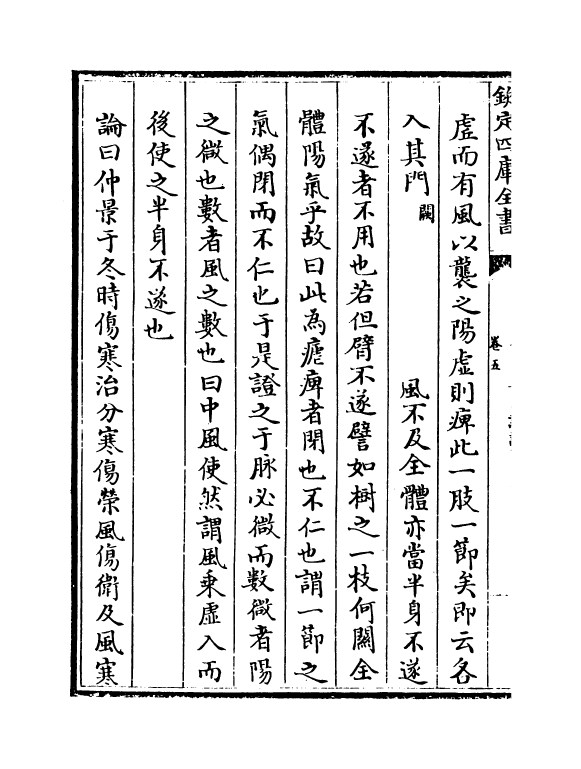 欽定四庫全書
卷五
虛而有風以襲之陽虛則痺此一肢一節矣即云各
入其門闕 風不及全體亦當半身不遂
不遂者不用也若但臂不遂譬如樹之一枝何關全
體陽氣乎故曰此為瘧痺者閉也不仁也謂一節之
氣偶閉而不仁也于是證之于脉必微而數微者陽
之微也數者風之數也曰中風使然謂風乗虛入而
後使之半身不遂也
論曰仲景于冬時傷寒治分寒傷榮風傷衛及風寒